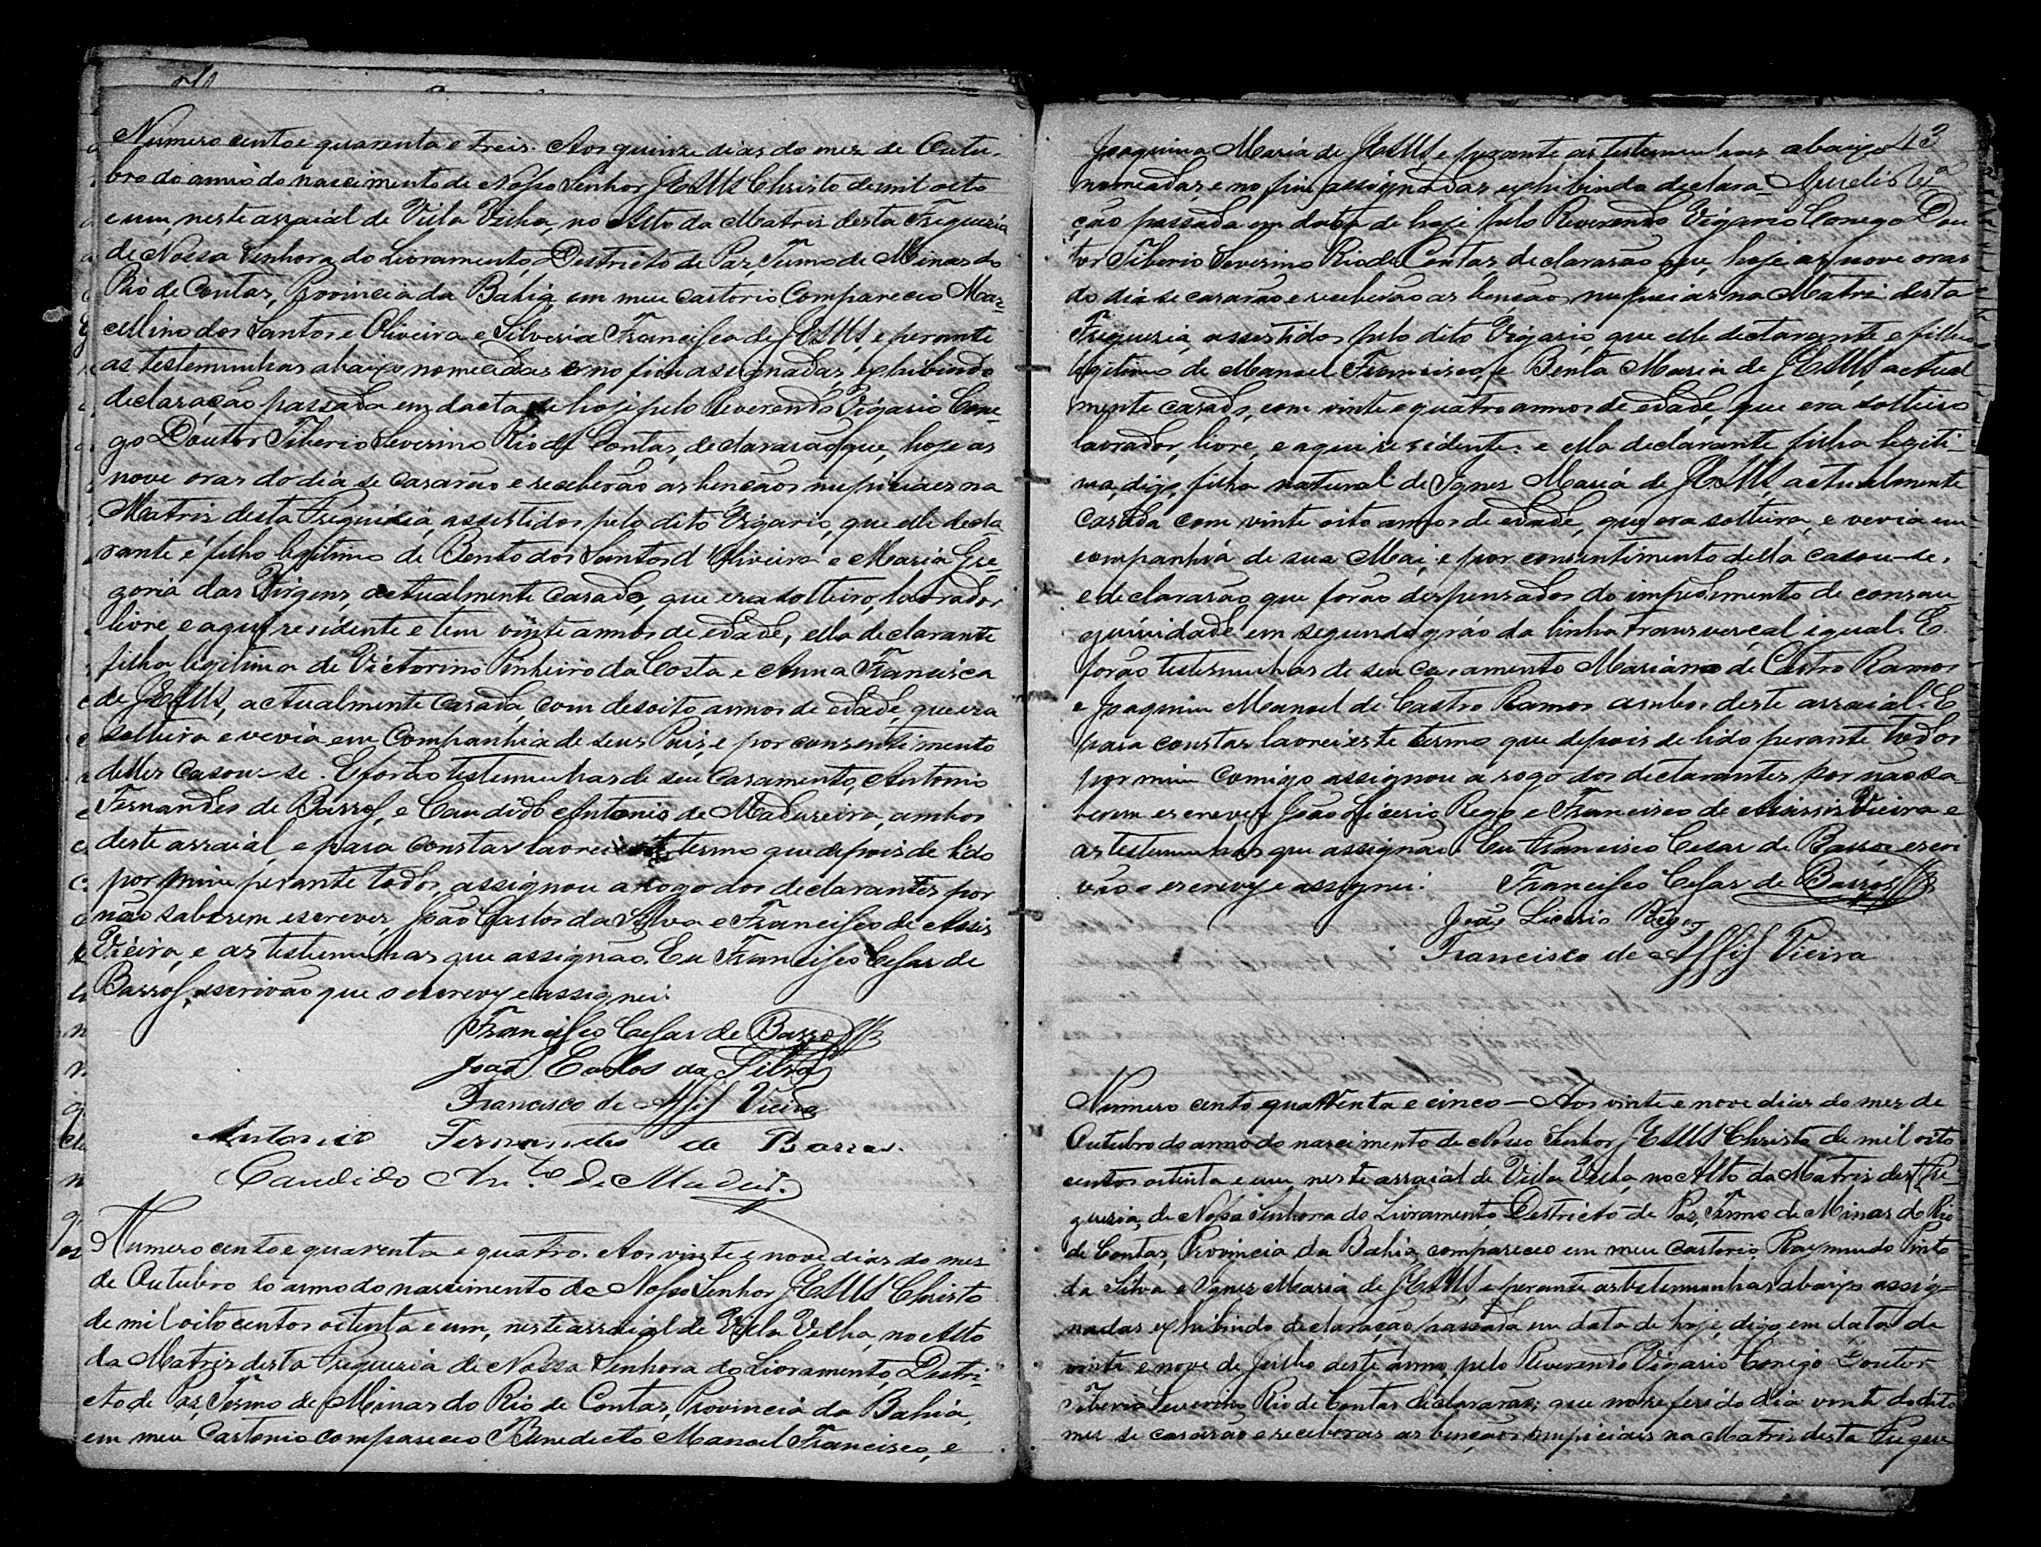 Numero cento e quarenta e treis. Aos quinze dias do mez de Outu-
bro do anno do nascimento de Nosso Senhor JESUS Christo de mil oito
e um, neste arraial de Villa Velha, no Alto da Matriz desta Freguezia
de Nossa Senhora do Livramento, Destricto de Paz, Termo de Minas do
Rio de Contas, Provincia da Bahia, em meu cartorio Compareceo Mar-
cellino dos Santos e Oliveira e Silveria Francisca de JESUS, e perante
as testemunhas abaixo nomeadas e no fim assignadas, exhibindo
declaração passada em dacta de hoje pelo Reverendo Vigario Cone-
go Doutor Tiberio Severino Rio de Contas, declararão que, hoje as
nove oras do dia se casarão e receberão as bençãos nupiciaes na
Matriz desta Freguezia, assistidos pelo dito Vigario, que elle decla
rante é filho legitimo de Bento dos Santos d Oliveira e Maria Gre-
goria das Virgens, actualmente casado, que era solteiro, lavrador
livre e aqui residente e tem vinte annos de edade, ella declarante
filha legitima de Victorino Pinheiro da Costa e Anna Francisca
de JESUS, actualmente casada, com desoito annos de edade, que era
solteira e vevia em Companhia de seus Pais, e por consentimento
delles casou-se. E forão testemunhas de seu casamento, Antonio
Fernandes de Barros, e Candido Antonio de Madureira, ambos
deste arraial, e para constar lavrei este termo que depois de lido
por mim perante todos, assignou a rogo dos declarantes por
não saberem escrever, João Carlos da Silva e Francisco de Assis
Vieira, e as testemunhas que assignão. Eu Francisco Cesar de
Barros, escrivão que o escrevy e assignei.
Francisco Cesar de Barros
João Carlos da Silva
Francisco de Assis Vieira
Antonio Fernandes de Barros.
Candido An.to de Madur.a
Numero cento e quarenta e quatro. Aos vinte e nove dias do mes
de Outubro do anno do nascimento de Nosso Senhor JESUS Christo
de mil oito centos oitenta e um, neste arraial de Villa Velha, no Alto
da Matriz desta Freguezia de Nossa Senhora do Livramento, Destri-
cto de Paz, Termo de Minas do Rio de Contas, Provincia da Bahia,
em meu Cartorio compareceo Benedicto Manoel Francisco, e
43
Joaquina Maria de JESUS e perante as testemunhas abaixo
nomeadas, e no fim assignadas, exhibindo declara
ção passada em data de hoje pelo Reverendo Vigario Conego Dou
tor Tiberio Severino Rio de Contas, declararão que, hoje as nove oras
do dia se casarão e receberão as bençãos nupciaes na Matriz desta
Freguezia, assistidos pelo dito Vigario, que elle declarante e filho
legitimo de Manoel Francisco, e Benta Maria de JESUS actual
mente casado, com vinte e quatro annos de edade, que era solteiro
lavrador, livre, e aqui residente. e ella declarante filha legiti-
ma, digo, filha natural de Ignes Maria de JESUS, actualmente
casada com vinte oito annos de edade, que era solteira, e vevia em
companhia de sua Mai, e por consentimento della casou-se,
e declararão que forão despensados do impedimento de consan
guinidade em segundo gráo da linha transvercal igual. E
forão testemunhas de seu casamento Mariano de Castro Ramos
e Joaquim Manoel de Castro Ramos ambos deste arraial. E
para constar lavrei este termo que depois de lido perante todos
por mim comigo assignou a rogo dos declarantes por não sa
berem escrever João Licerio Rego e Francisco de Assis Vieira e
as testemunhas que assignão. Eu Francisco Cesar de Barros escri
vão o escrevy e assignei. Francisco Cesar de Barros
João Licerio Rego
Francisco de Assis Vieira
Numero cento quarenta e cinco - Aos vinte e nove dias do mes de
Outubro do anno do nascimento de Nosso Senhor JESUS Christo de mil oito
centos oitenta e um, neste arraial de Villa Velha, no Alto da Matriz desta Fre-
guezia, de Nossa Senhora do Livramento, Destricto de Paz, Termo de Minas do Rio
de Contas, Provincia da Bahia, compareceo em meu Cartorio Raymundo Pinto
da Silva e Ignes Maria de JESUS e perante as testemunhas abaixo assig-
nadas exhibindo declaração passada em data de hoje, digo, em data de
vinte e nove de Julho deste anno, pelo Reverendo Vigario Conego Doutor
Tiberio Severino Rio de Contas declararão, que no referido dia vinte do dito
mes se casarão e receberão as bençãos nupiciais na Matriz desta Fregue